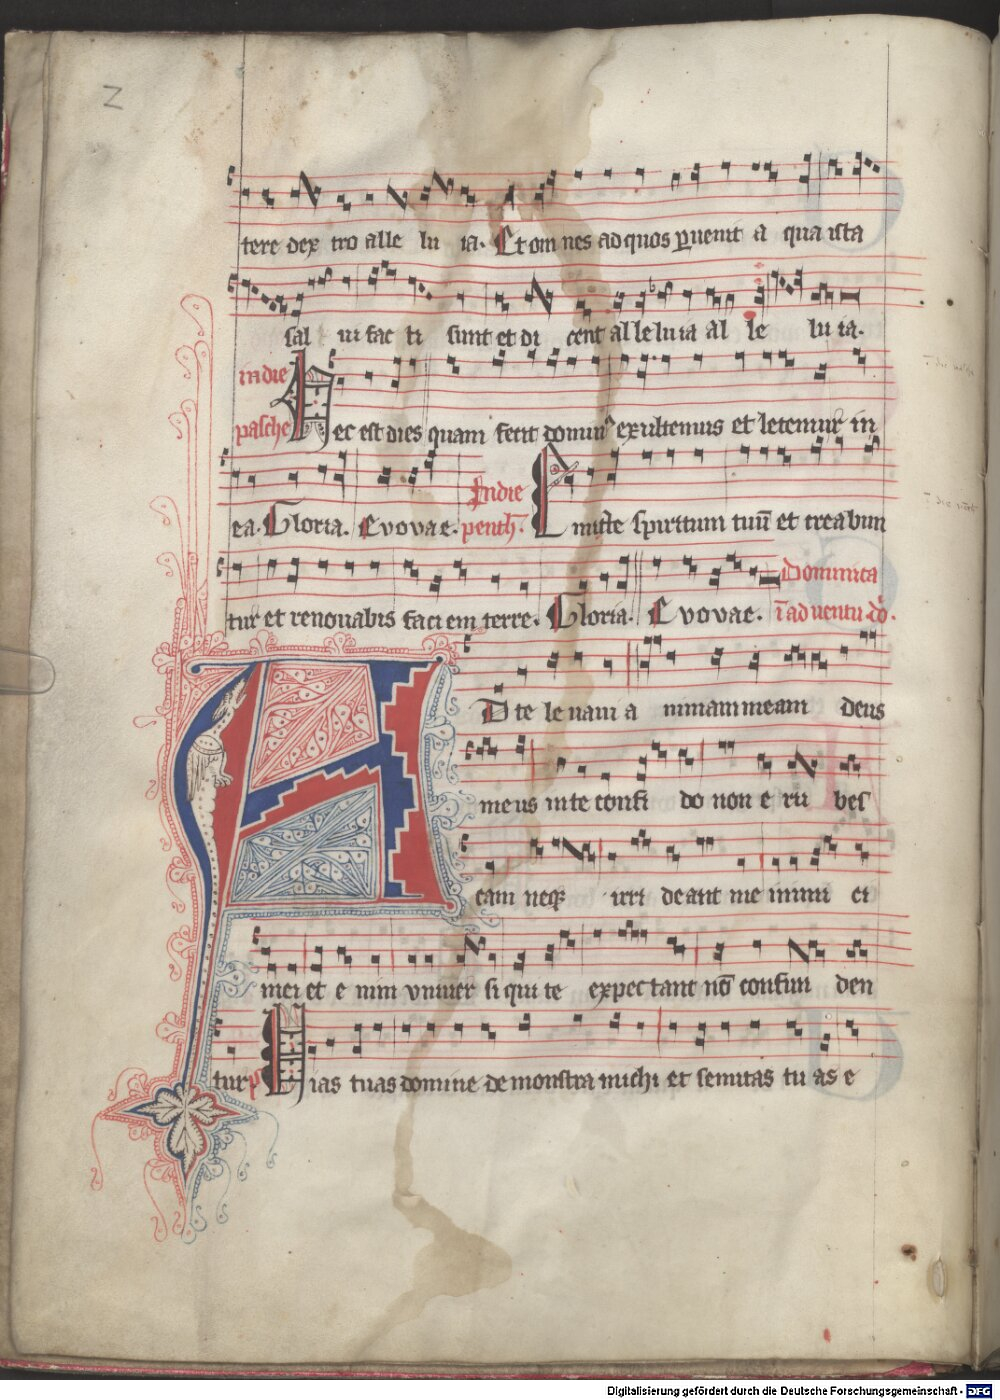 Z
tere dex tro alle lu ia. Et om nes ad quos puenit a qua ista
sal ui fac ti sunt et di cent al le lu ia al le lu ia.
in die
pasche Hec est dies quam fecit domin⁹ exultemus et letemur in
ea. Gloria. Evovae. In die penth. Emitte spiritum tuū et creabun
tur et renouabis faci em terre. Gloria. Evovae. Dominica
ī ad uentu dō.
AD te le naui a nimam meam deus
meus in te confi do non e ru bes
cam neq irri deant me inimi ci
mei et e nim vniuer si qui te expectant nō confun den
tur Vias tuas domine de monstra michi et semitas tu as e
Digitalisierung gefördert durch die Deutsche Forschungsgemeinschaft - DFG